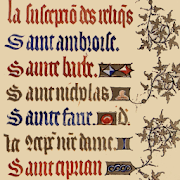 la susception des reliq̃s
Saint ambroise.
Sainte barbe.
Saint nicholas
Sainte fare. d.
le cept nr̃e dame
Saint ciprian